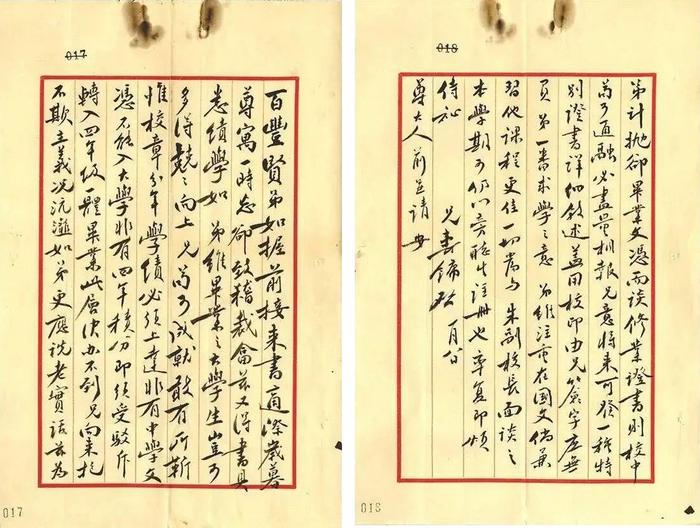 017
百豐賢弟如握前接来書適際歲暮
尊寓一時忘卻致稽裁畣茲又得書具
悉績學如弟維畢業之大學生豈可
多得兢〻向上兄苟可成就敢有所靳
惟校章分年學績必須上達非有中學文
憑不能入大學非有四年積分即須受駁斥
轉入四年級一體畢業此層决办不到兄向来抱
不欺主義况沆瀣如弟更應說老實話茲為
017
018
弟計拋卻畢業文憑而談修業證書則校中
苟可通融必盡量相報兄意將来可發一種特
別證書詳細敘述蓋用校印由兄簽字庶無
負弟一番求學之意弟維注重在國文倘兼
習他課程更佳一切與朱副校長面談之
本學期可仍以旁聽生註冊也率复即頌
侍祉 兄壽鏞 一月
尊大人前並請安
018